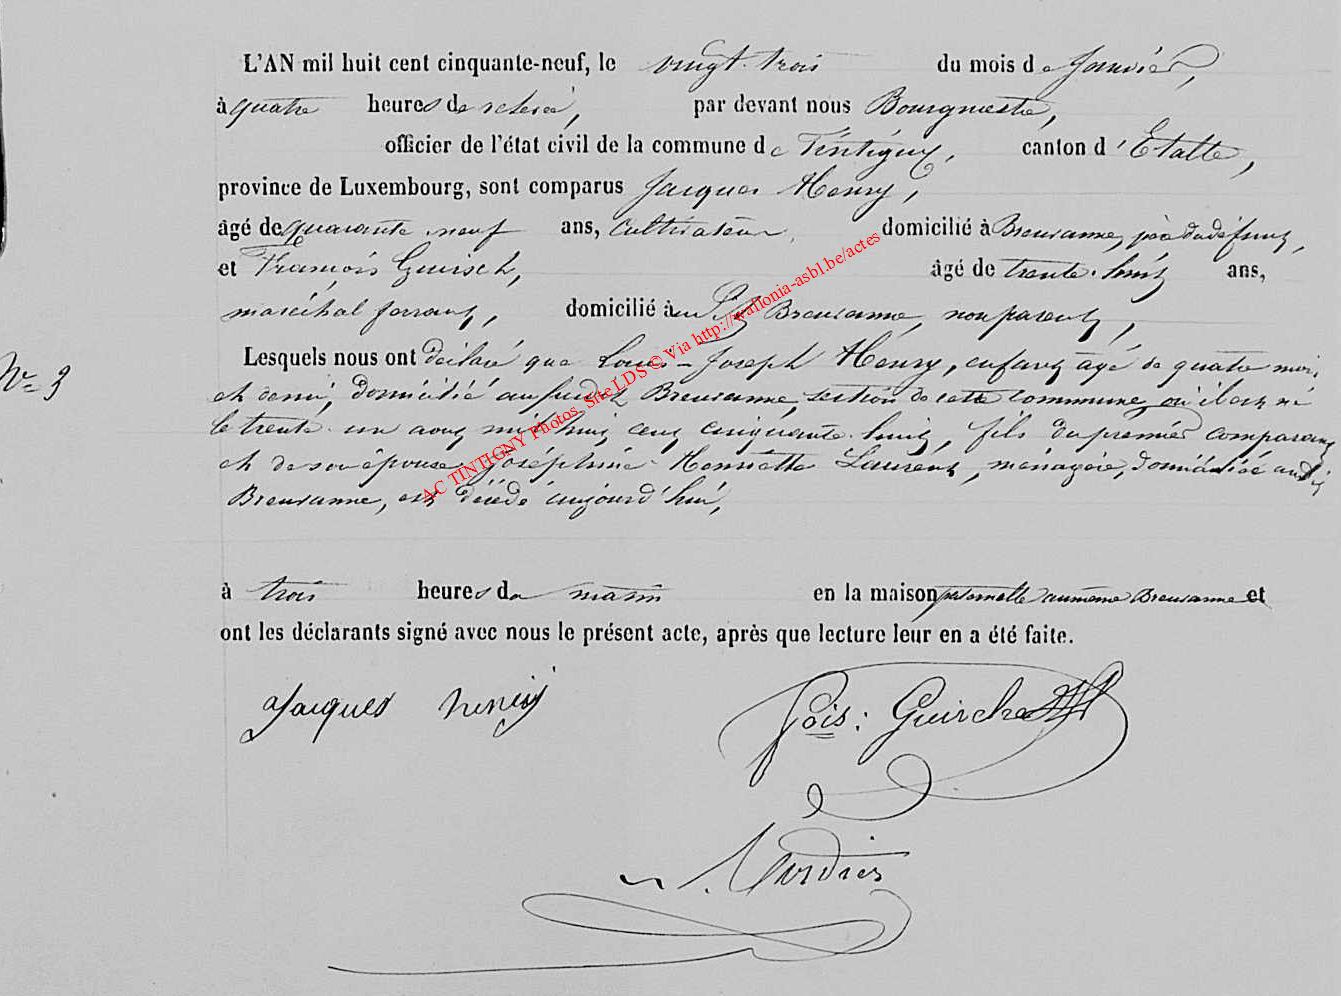 L'AN mil huit cent cinquante-neuf, le vingt-trois du mois de Janvier,
à quatre heures de relevé, par devant nous Bourgmestre,
officier de l'état civil de la commune de Tintigny, canton d'Etalle,
province de Luxembourg, sont comparus Jacques Henry,
âgé de quarante neuf ans, cultivateur, domicilié à Breuvanne, père du défunt,
et François Guirsch, âgé de trente-huit ans,
maréchal ferrant, domicilié au dit Breuvanne, non parent,
N° 3
Lesquels nous ont déclaré que Louis-Joseph Henry, enfant âgé de quatre mois
et demi, domicilié au susdit Breuvanne, section de cette commune, où il est né
le trente-un aout mil huit cent cinquante-huit, fils du premier comparant
et de son épouse Joséphine-Henriette Laurent, ménagère, domiciliée audit
Breuvanne, est décédé aujourd'hui,
à trois heures du matin en la maison paternelle au même Breuvanne et
ont les déclarants signé avec nous le présent acte, après que lecture leur en a été faite.
Jacques henry Fois: Guirche
AC TINTIGNY Photos, Site LDS © Via http://wallonia-asbl.be/actes